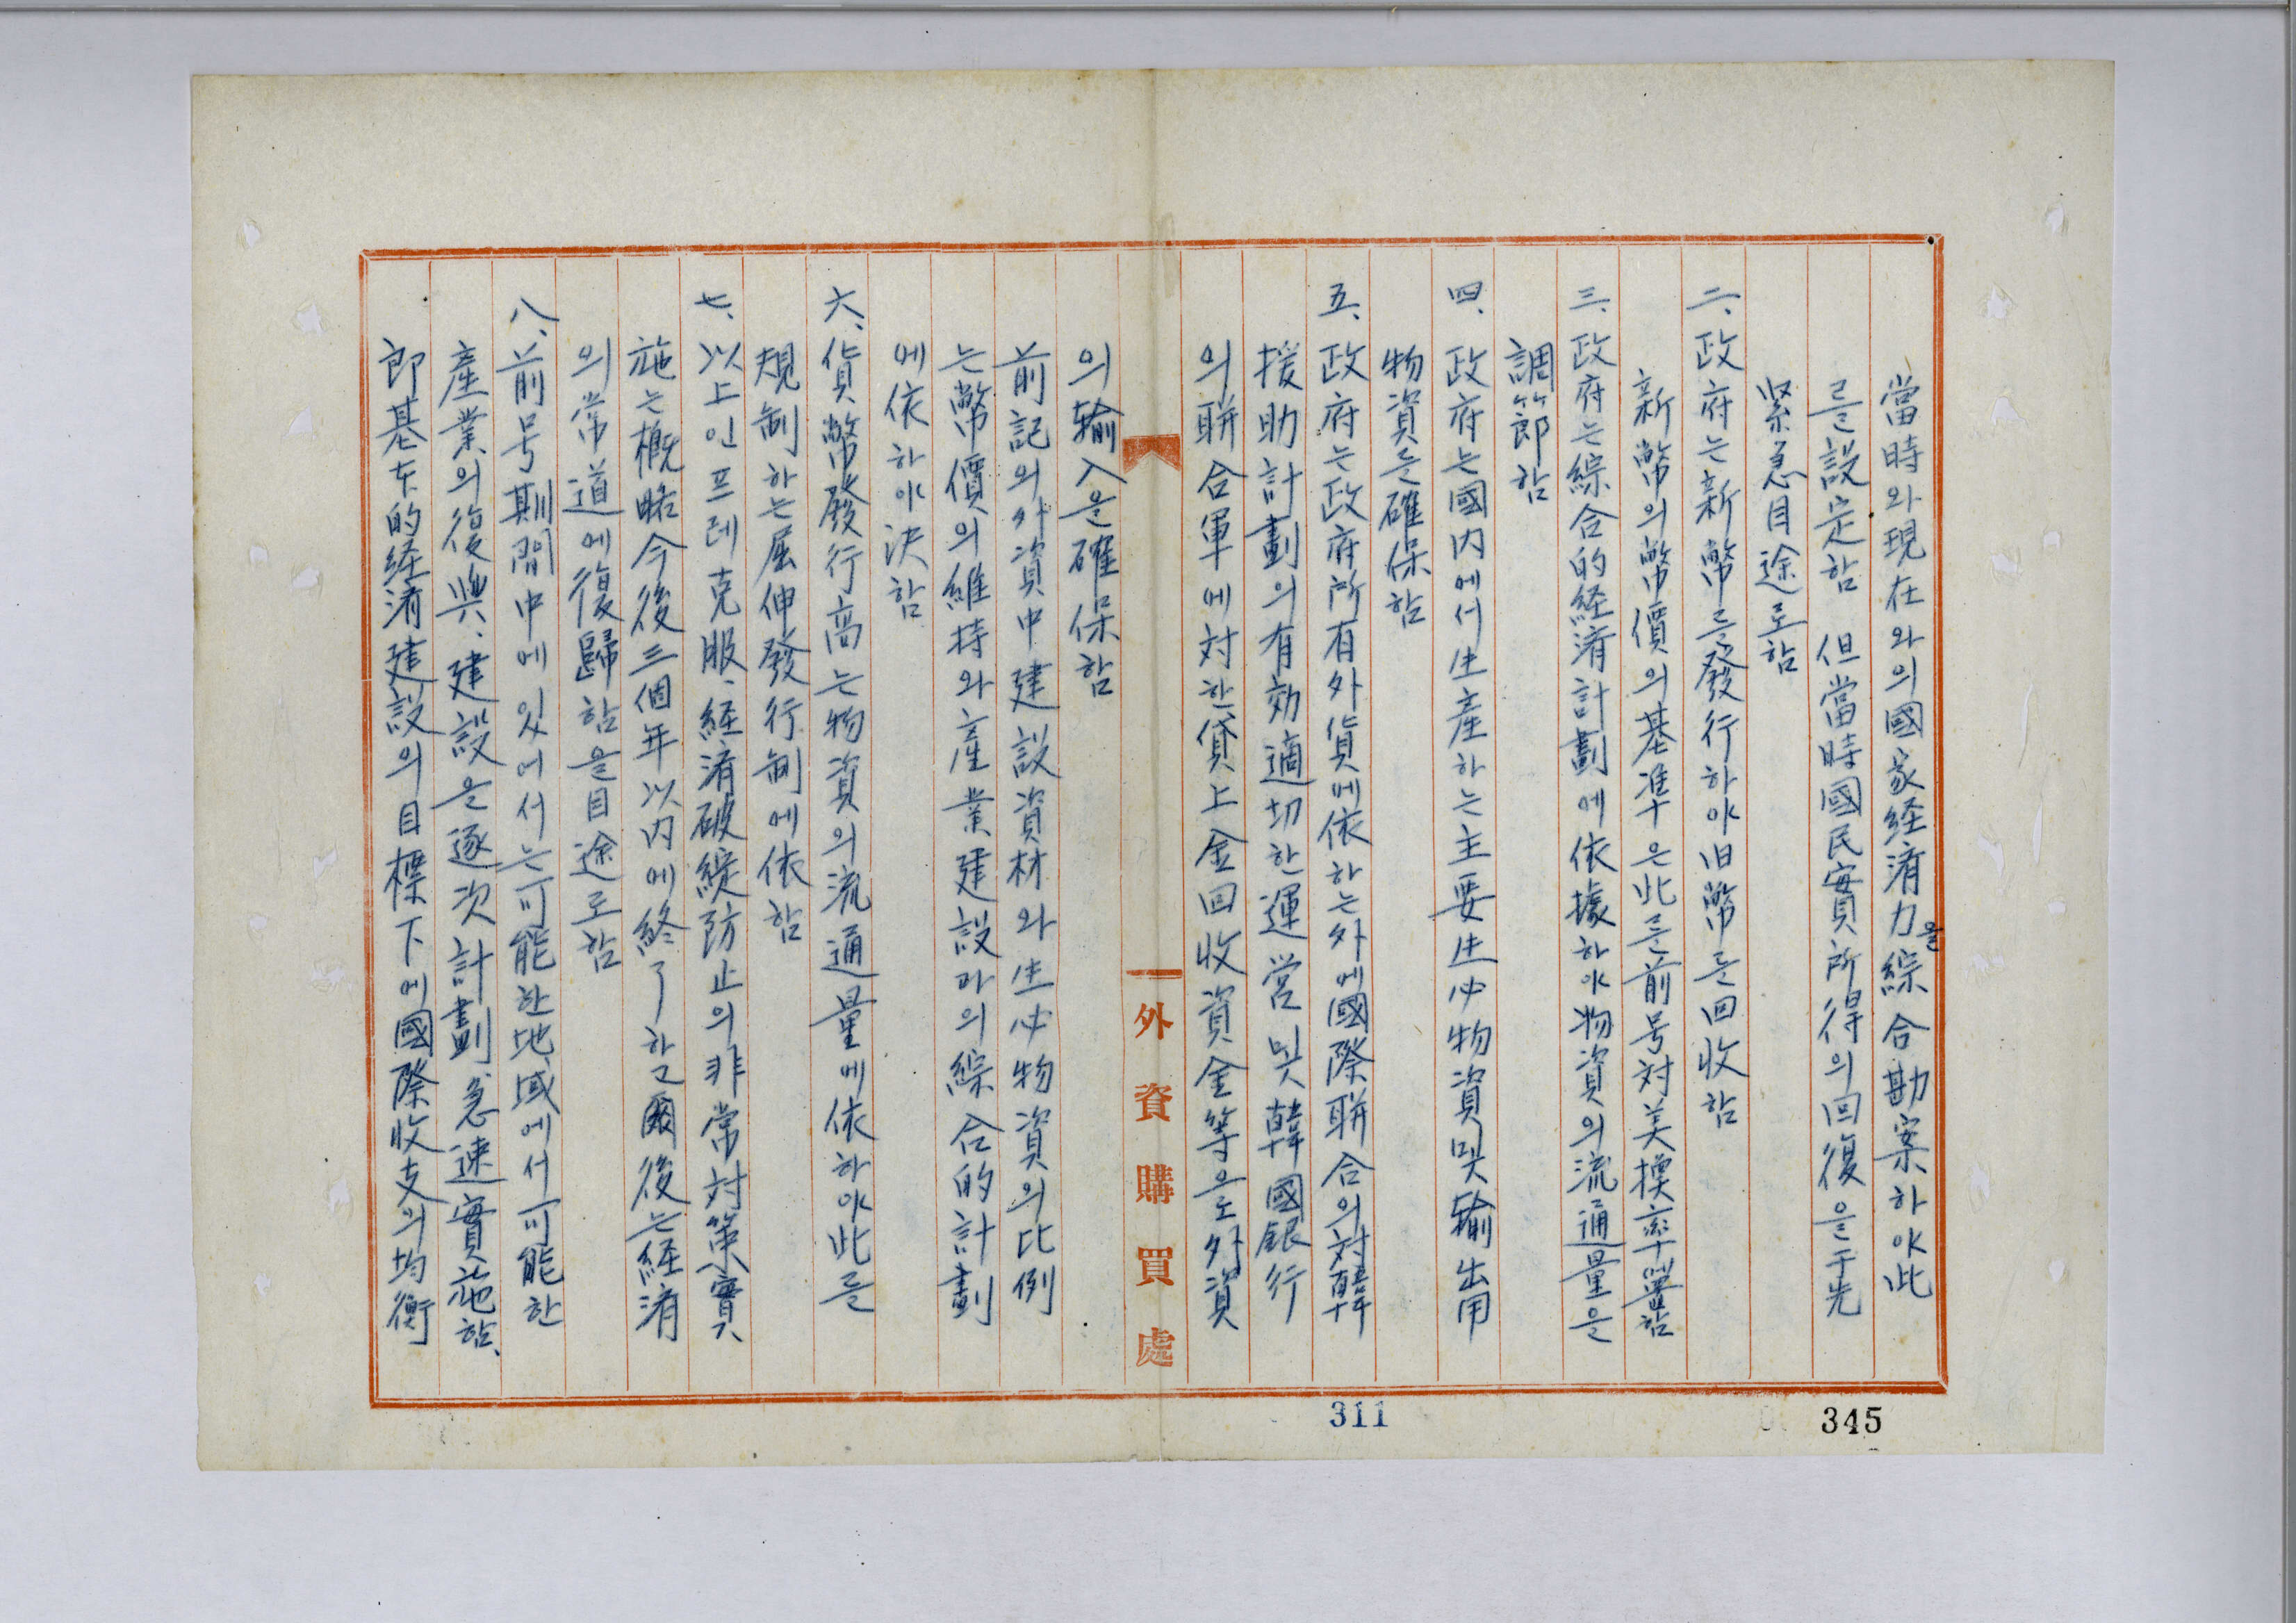 當時와現在와의國家経済力을綜合勘案하야此
를設定함 但當時國民實質所得의回復을于先
緊急目途로함
二、政府는新幣를發行하야旧幣를回收함
新幣의幣價의基準은此를前号対美換率에置함
三、政府는綜合的経済計劃에依據하야物資의流通量을
調節함
四、政府는國内에서生産하는主要生必物資및输出用
物資를確保함
五、政府는政府所有外貨에依하는外에國際聯合의対韓
援助計劃의有効適切한運営및韓國銀行
의聯合軍에対한貸上金回收資金等으로外資
外資購買處
의输入을確保함
前記의外資中建設資材와生必物資의比例
는幣價의維持와産業建設과의綜合的計劃
에依하야決함
六、貨幣發行高는物資의流通量에依하야此를
規制하는屈伸發行制에依함
七、以上인프레克服、経済破綻防止의非常対策實
施는概略今後三個年以内에終了하고爾後는経済
의常道에復歸함을目途로함
八、前号期間中에있어서는可能한地域에서可能한
産業의復興、建設을逐次計劃、急速實施함、
即基本的経済建設의目標下에國際收支의均衡
311
345